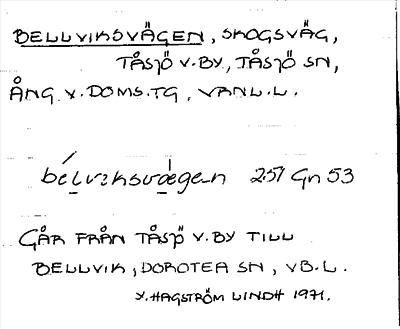 BELLVIKSVÄGEN, SKOGSVÄG,
TÅSJÖ V.BY, TÅSJÖ SN,
ÅNG. V. DOMS. TG, VÄNL.L.
bélviksvægen 251 Gn 53
GÅR FRÅN TÅSJÖ V.BY TILL
BELLVIK, DOROTEA SN, VB.L.
V. HAGSTRÖM LINDH 1971.